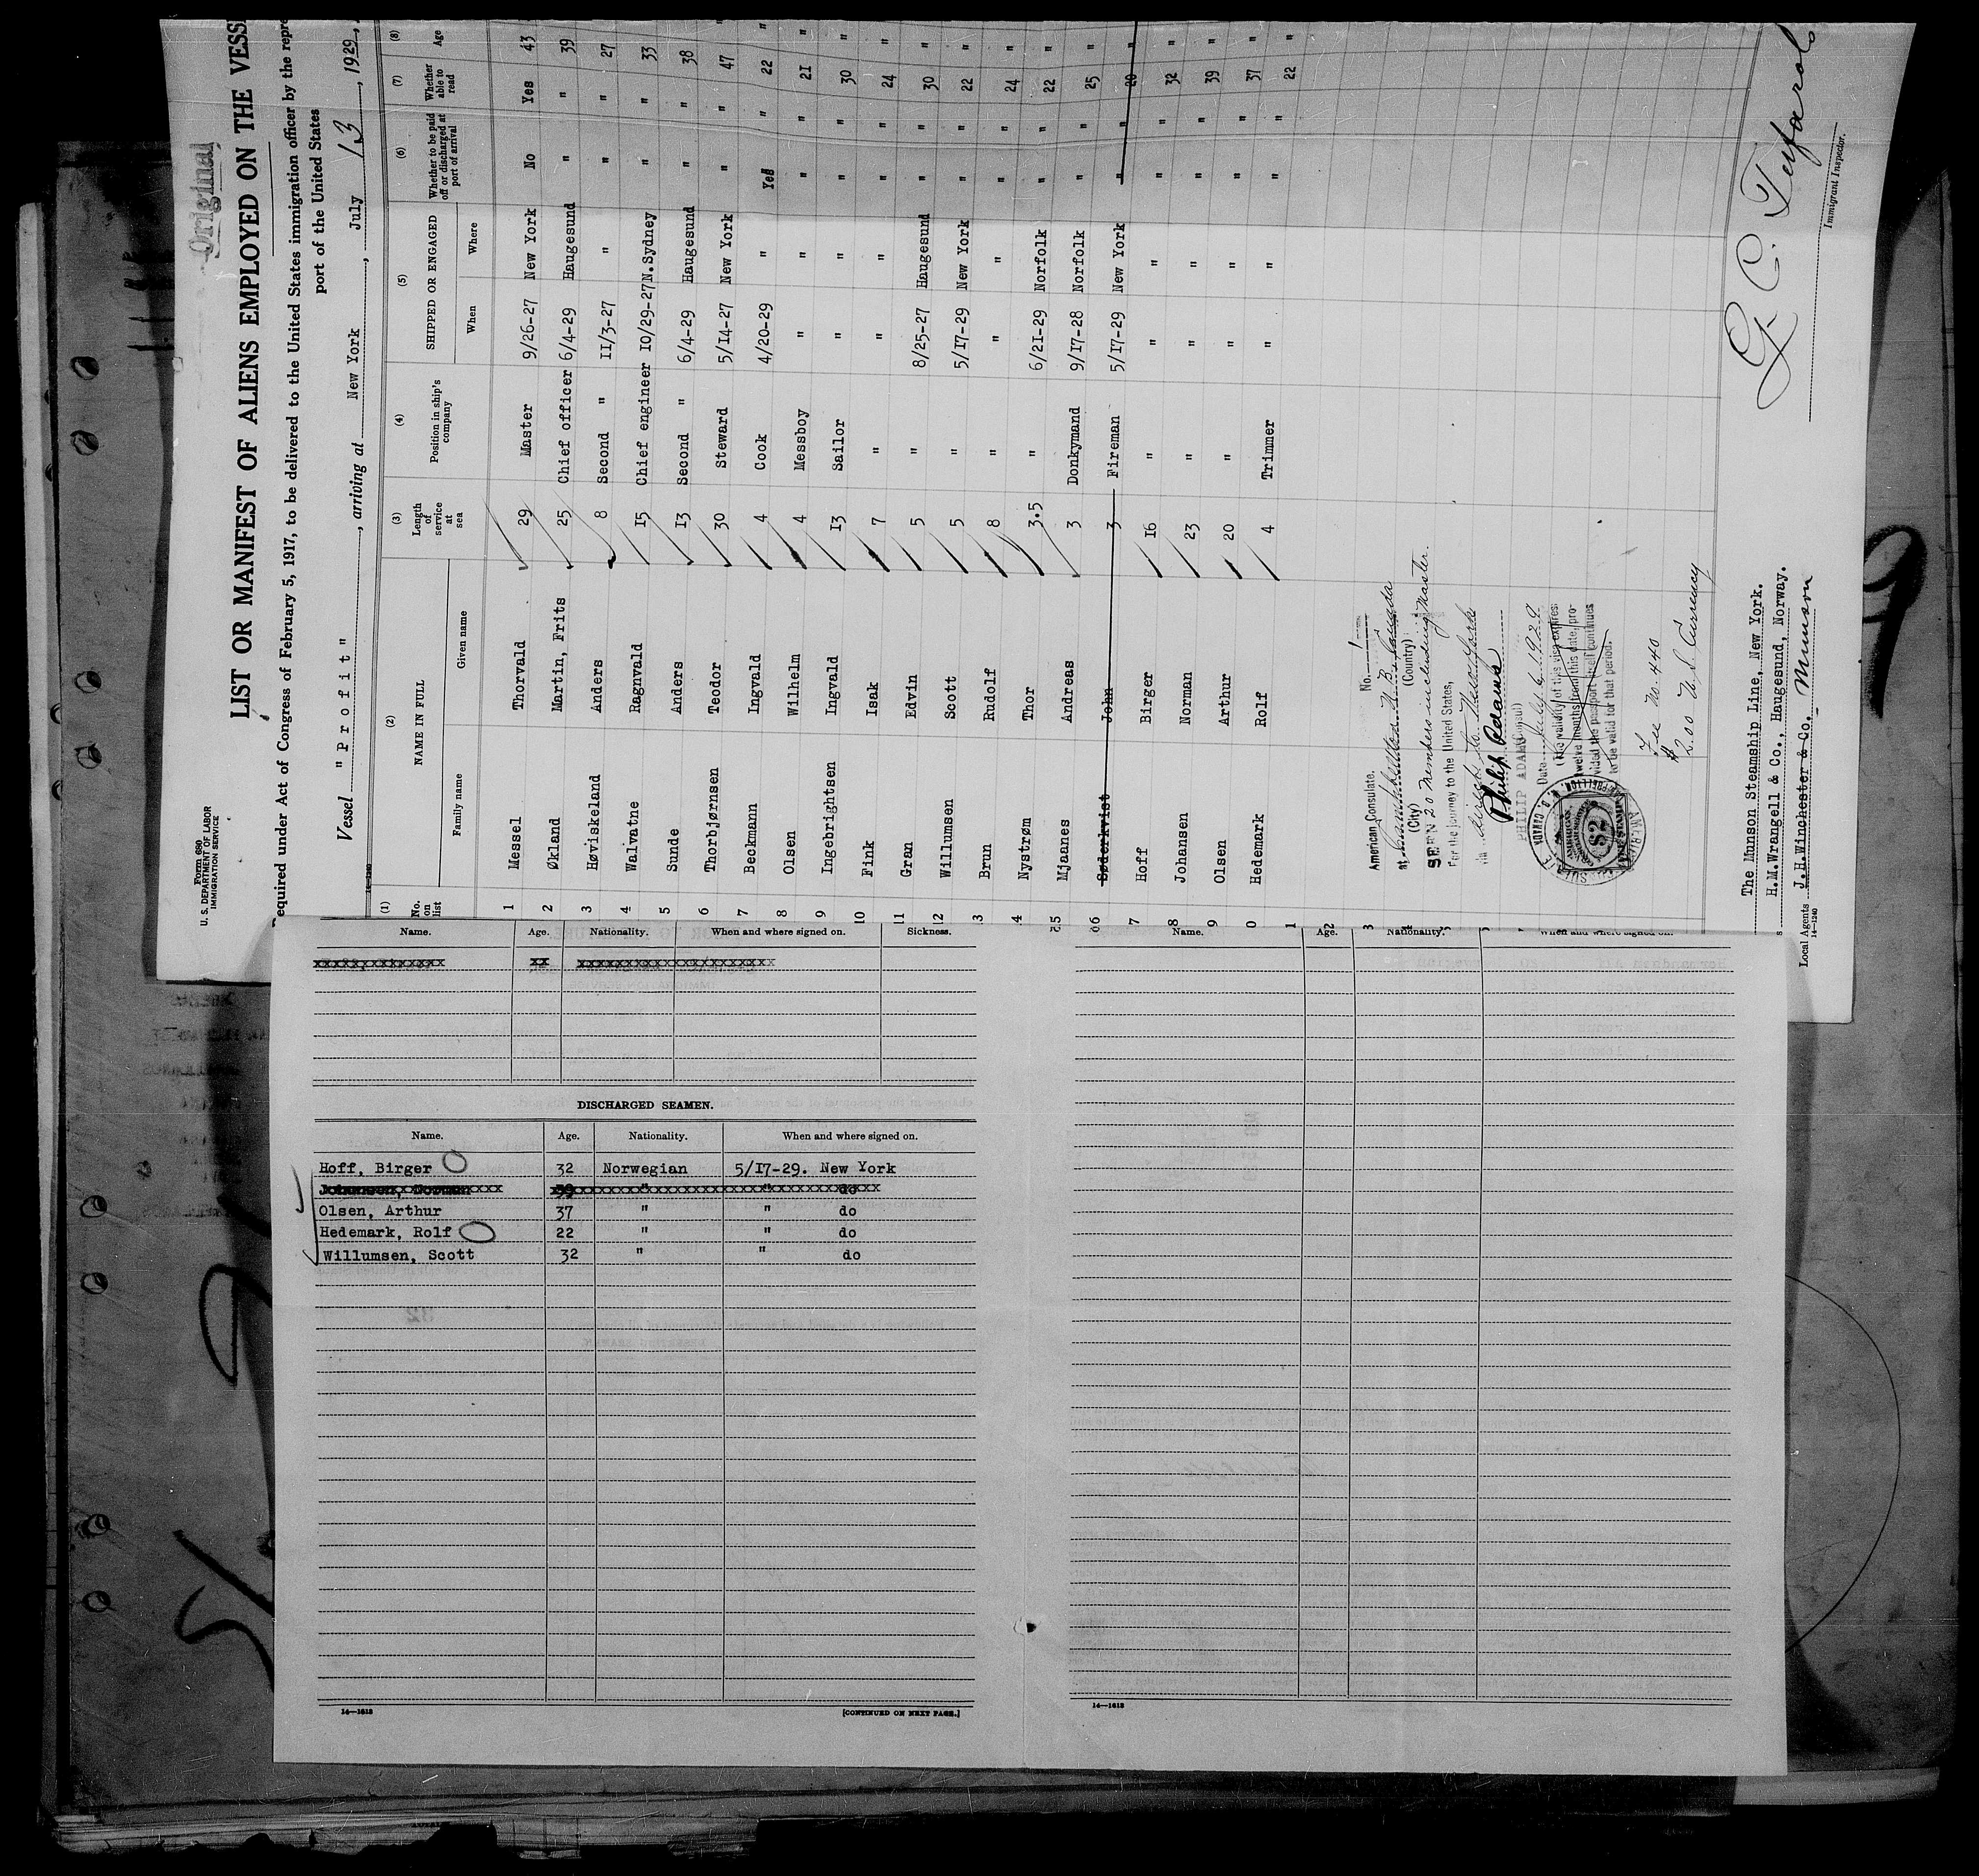 Original
Form 680
U. S. DEPARTMENT OF LABOR
IMMIGRATION SERVICE
LIST OR MANIFEST OF ALIENS EMPLOYED ON THE VESS
equired under Act of Congress of February 5, 1917, to be delivered to the United States immigration officer by the repre
port of the United States
Vessel "Profit", arriving at New York, July 13, 1929,
(1) (2) (3) (4) (5) (6) (7) (8)
No. on list NAME IN FULL Length of service at sea Position in ship's company SHIPPED OR ENGAGED Whether to be paid off or discharged at port of arrival Whether able to read Age
Family name Given name When Where
1 Messel Thorvald 29 Master 9/26-27 New York No Yes 43
2 Økland Martin, Frits 25 Chief officer 6/4-29 Haugesund " " 39
3 Høviskeland Anders 8 Second " 11/3-27 " " " 27
4 Walvatne Ragnvald 15 Chief engineer 10/29-27 N.Sydney " " 33
5 Sunde Anders 13 Second " 6/4-29 Haugesund " " 38
6 Thorbjørnsen Teodor 30 Steward 5/14-27 New York " " 47
7 Beckmann Ingvald 4 Cook 4/20-29 " Yes " 22
8 Olsen Wilhelm 4 Messboy " " " " 21
9 Ingebrightsen Ingvald 13 Sailor " " " " 30
10 Fink Isak 7 " " " " " 24
11 Gran Edvin 5 " 8/25-27 Haugesund " " 30
12 Willumsen Scott 5 " 5/17-29 New York " " 22
3 Brun Rudolf 8 " " " " " 24
4 Nystrøm Thor 3.5 " 6/21-29 Norfolk " " 22
5 Mjaanes Andreas 3 Donkymand 9/17-28 Norfolk " " 25
6 Søderkvist John 3 Fireman 5/17-29 New York " " 20
7 Hoff Birger 16 " " " " " 32
8 Johansen Norman 23 " " " " " 39
9 Olsen Arthur 20 " " " " " 37
0 Hedemark Rolf 4 Trimmer " " " " 22
1
2
3
American Consulate. No. 1
at Campbellton N. B. Canada
(City) (Country)
SEEN 20 members including Master.
For the journey to the United States,
via direct to New York
Philip Adams
PHILIP ADAMS
Date July 6, 1929
(The validity of this visa expires
twelve months from this date, pro-
vided the passport itself continues
to be valid for that period.
Fee No. 440
$2.00 U.S. Currency
The Munson Steamship Line, New York.
H.M.Wrangell & Co., Haugesund, Norway.
Local Agents J.H.Winchester & Co. Munson
14-1240
G. C. Tufarolo
Immigrant Inspector.
Name. Age. Nationality. When and where signed on. Sickness.
DISCHARGED SEAMEN.
Name. Age. Nationality. When and where signed on.
Hoff, Birger 32 Norwegian 5/17-29. New York
Johansen, Norman 39 " " do
Olsen, Arthur 37 " " do
Hedemark, Rolf 22 " " do
Willumsen, Scott 32 " " do
14—1613
[CONTINUED ON NEXT PAGE.]
Name. Age. Nationality. When and where signed on.
14—1613